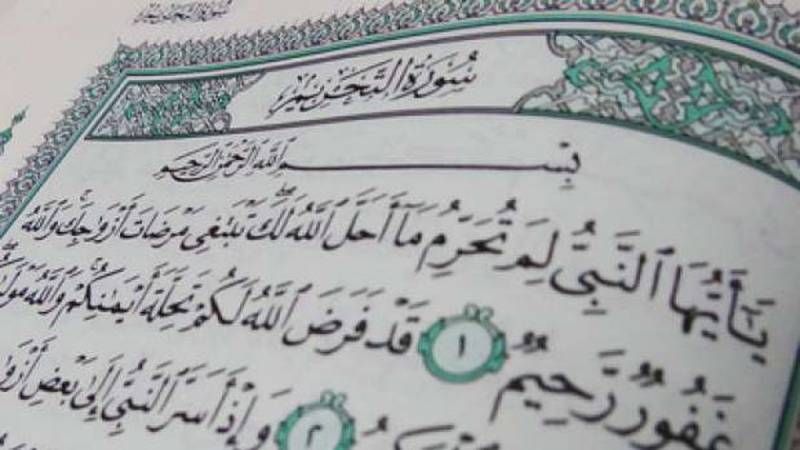 سُورَةُ التَّحْرِيمِ
بِسْمِ ٱللَّهِ ٱلرَّحْمَٰنِ ٱلرَّحِيمِ
يَٰٓأَيُّهَا ٱلنَّبِىُّ لِمَ تُحَرِّمُ مَآ أَحَلَّ ٱللَّهُ لَكَ ۖ تَبْتَغِى مَرْضَاتَ أَزْوَٰجِكَ ۚ وَٱللَّهُ
غَفُورٌ رَّحِيمٌ ١ قَدْ فَرَضَ ٱللَّهُ لَكُمْ تَحِلَّةَ أَيْمَٰنِكُمْ ۚ وَٱللَّهُ
٢ وَإِذْ أَسَرَّ ٱلنَّبِىُّ إِلَىٰ بَعْضِ